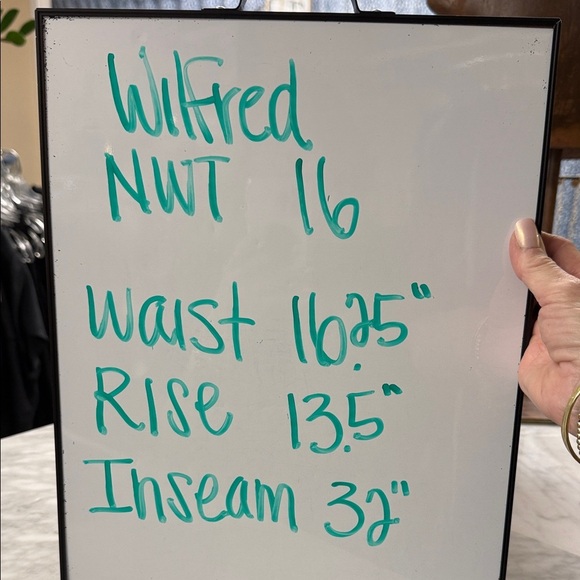 Wilfred
NWT 16
Waist 16.25"
Rise 13.5"
Inseam 32"